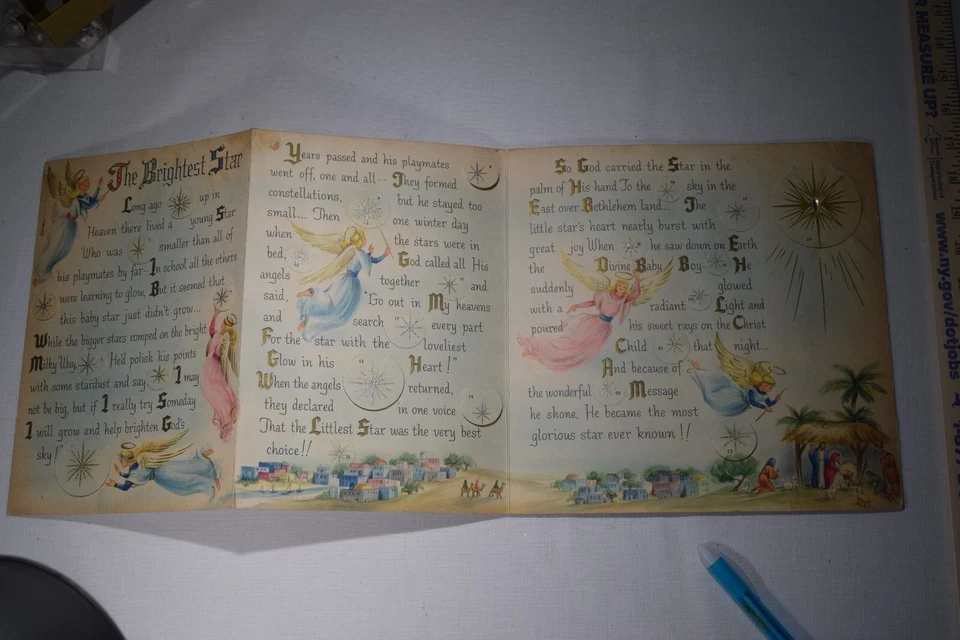 The Brightest Star
Long ago up in
Heaven there lived a young Star
Who was smaller than all of
his playmates by far. In school all the others
were learning to glow, But it seemed that
this baby star just didn't grow...
While the bigger stars romped on the bright
Milky Way, He'd polish his points
with some stardust and say " I may
not be big, but if I really try Someday
I will grow and help brighten God's
sky!"
Years passed and his playmates
went off, one and all-- They formed
constellations, but he stayed too
small... Then one winter day
when the stars were in
bed, God called all His
angels together and
said, "Go out in My heavens
and search every part
For the star with the loveliest
Glow in his Heart!"
When the angels returned,
they declared in one voice
That the Littlest Star was the very best
choice!!
So God carried the Star in the
palm of His hand To the sky in the
East over Bethlehem land... The
little star's heart nearly burst with
great joy When he saw down on Earth
the Divine Baby Boy He
suddenly glowed
with a radiant Light and
poured his sweet rays on the Christ
Child that night...
And because of
the wonderful Message
he shone, He became the most
glorious star ever known!!
R MEASURE UP?
www.ny.gov/dotjobs